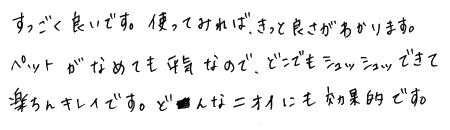 すっごく良いです。使ってみれば、きっと良さがわかります。
ペットがなめても平気なので、どこでもシュッシュッできて
楽ちんキレイです。どんなニオイにも効果的です。